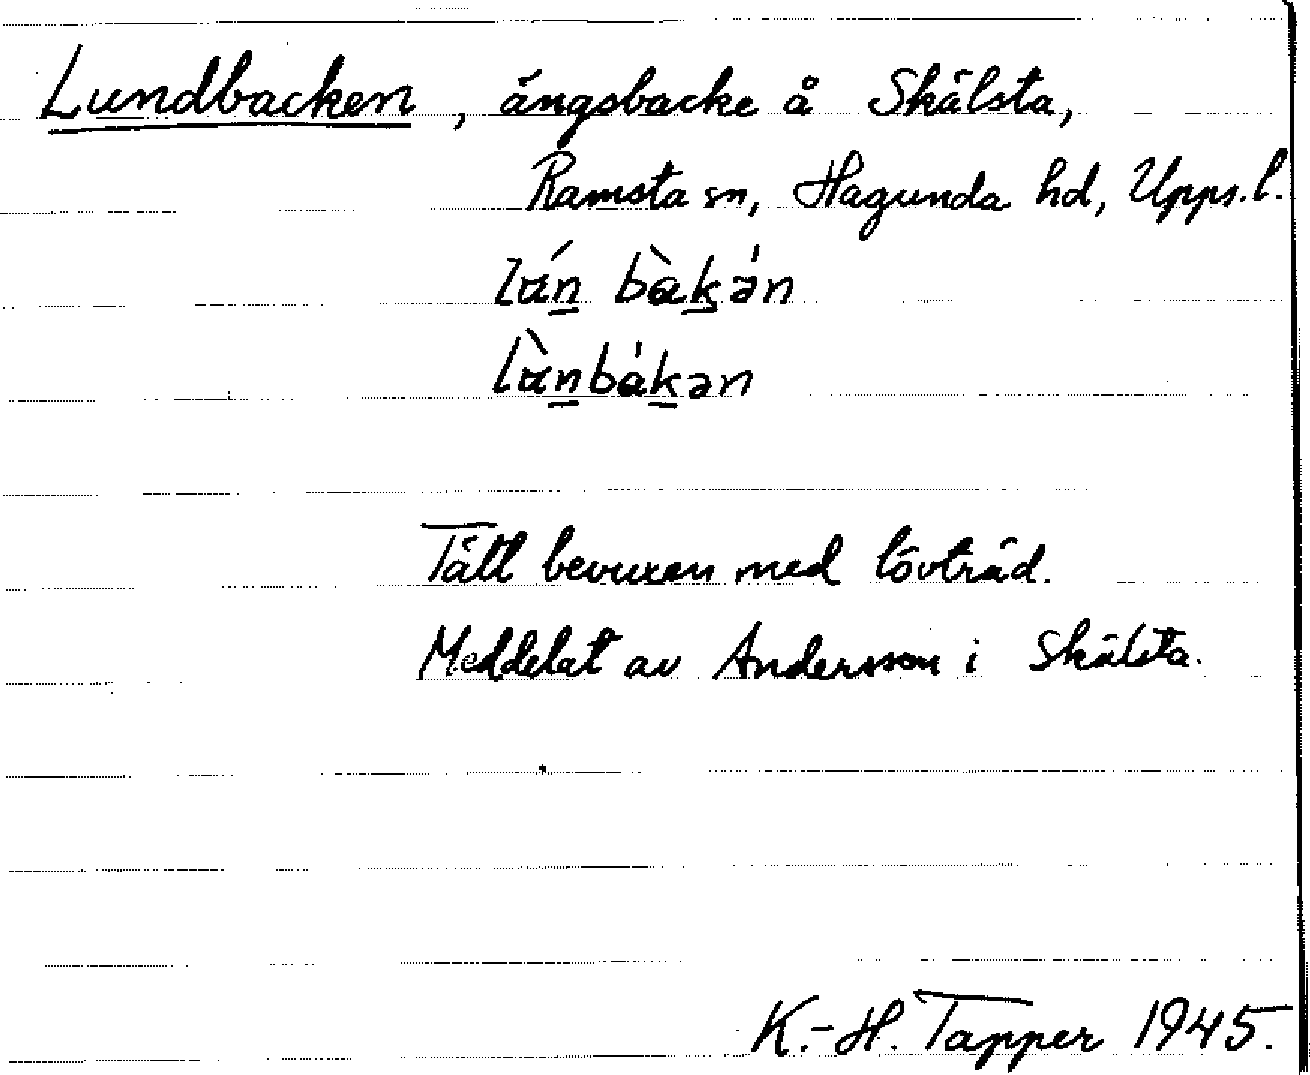 Lundbacken, ängsbacke å Skälsta,
Ramsta sn, Hagunda hd, Upps. l.
Tätt bevuxen med lövträd.
Meddelat av Andersson i Skälsta.
K.-H. Tapper 1945.